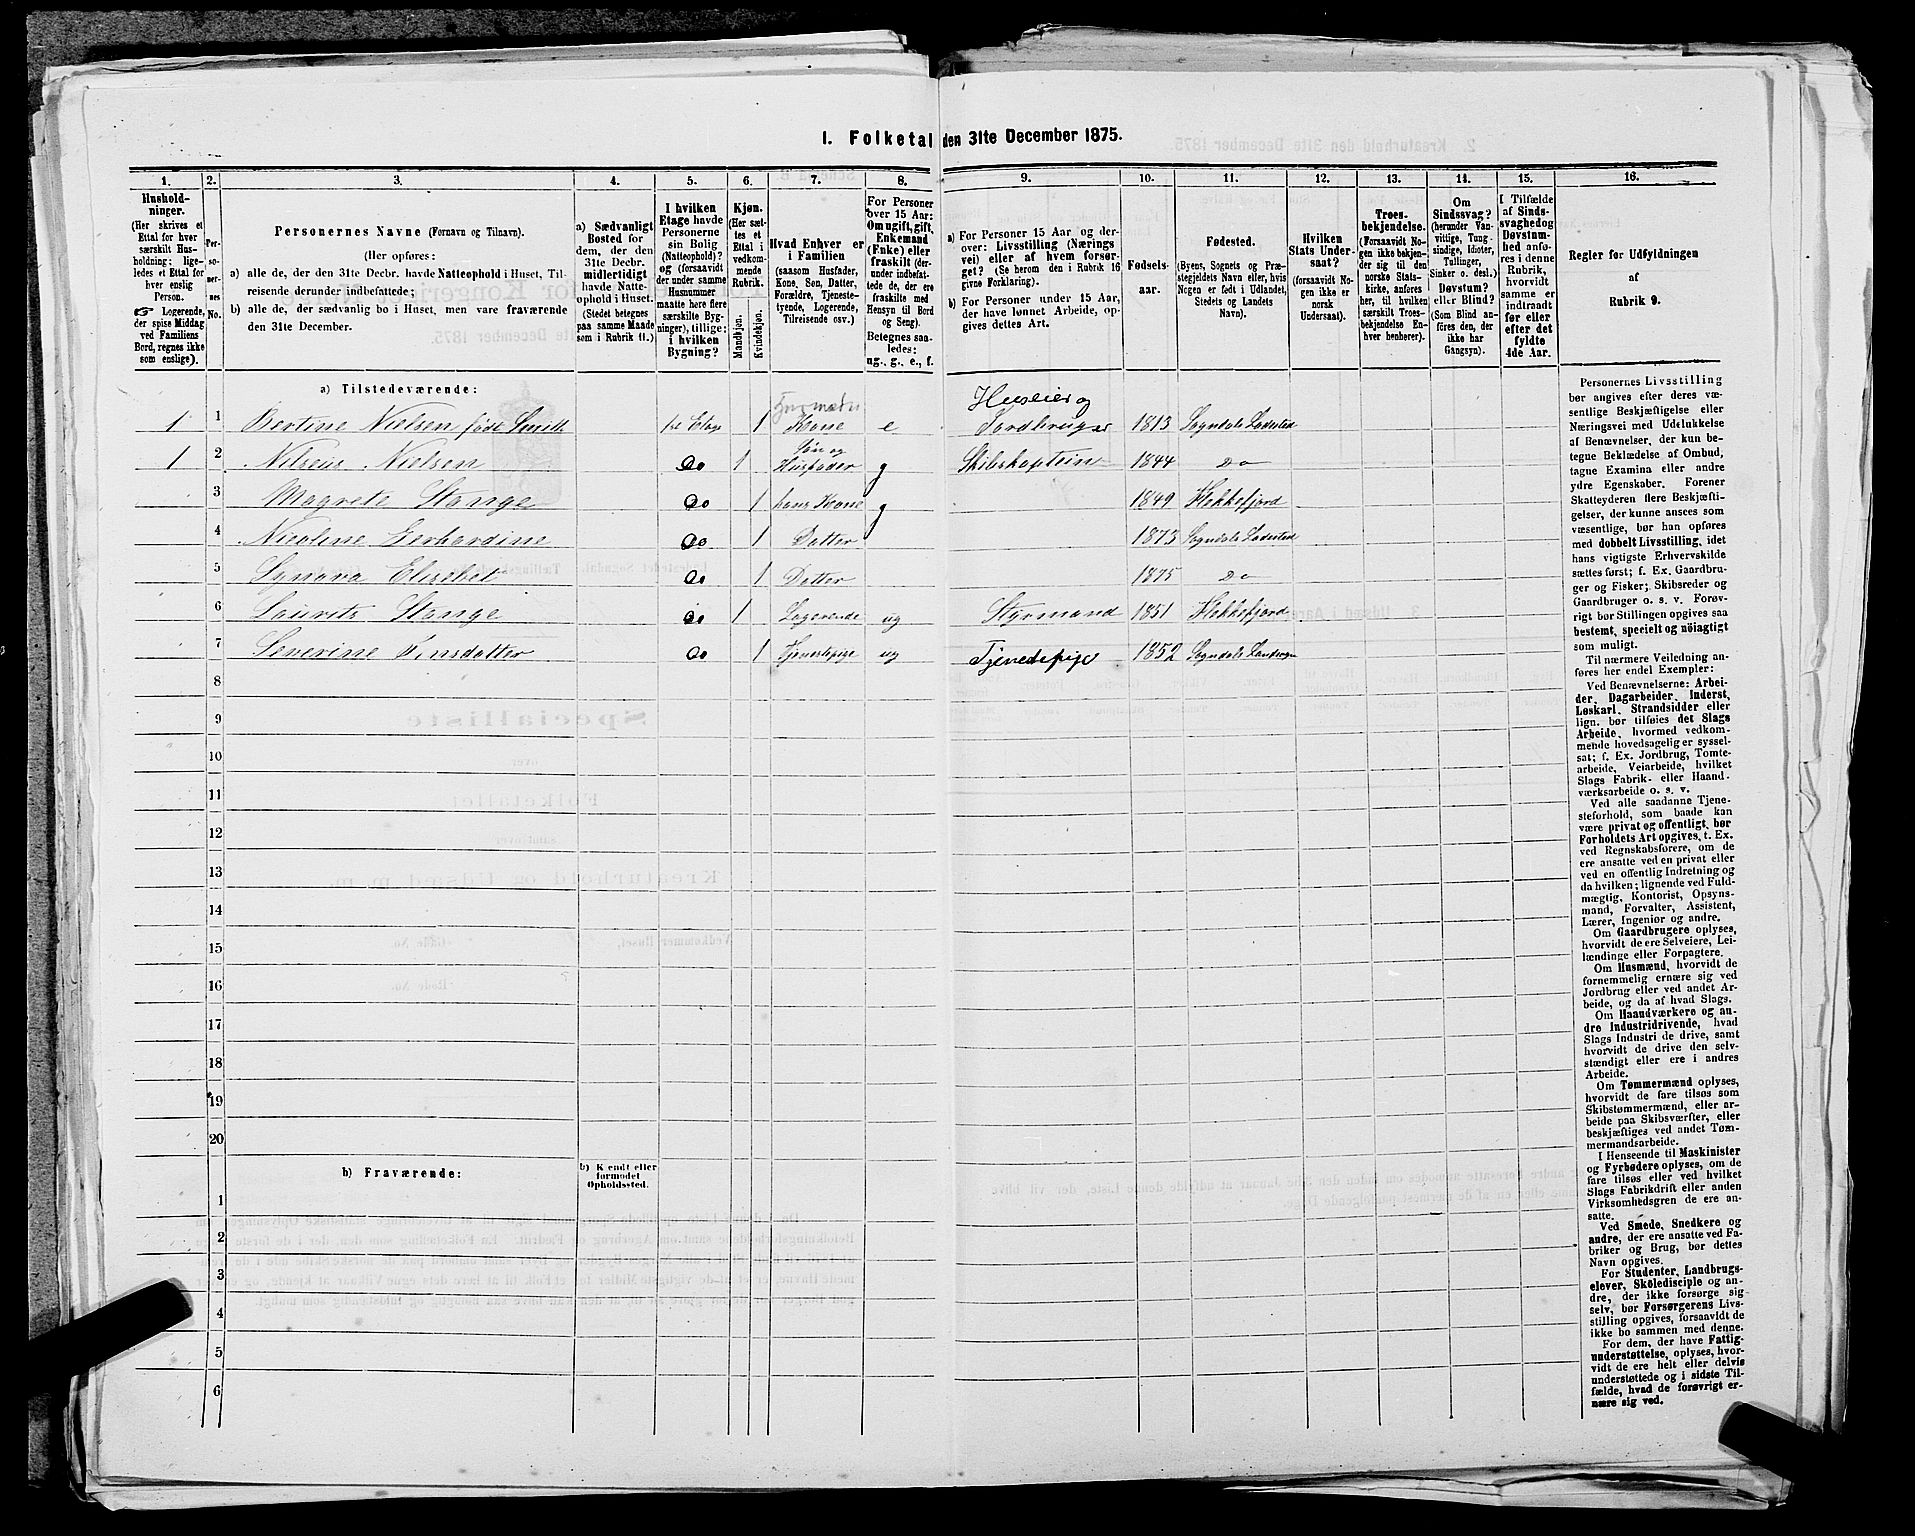 1. Folketal den 31te December 1875.
1.
2.
3.
4.
5.
6.
7.
8.
9.
10.
11.
12.
13.
14.
15.
16.
Hushold-
ninger.
(Her skrives et
Ettal for hver
særskilt Hus-
holdning; lige-
ledes et Ettal for
hver enslig
Person.
☞ Logerende,
der spise Middag
ved Familiens
Bord, regnes ikke
som enslige).
Per-
soner-
nes
No.
Personernes Navne (Fornavn og Tilnavn).
(Her opføres:
a) alle de, der den 31te Decbr. havde Natteophold i Huset, Til-
reisende derunder indbefattede;
b) alle de, der sædvanlig bo i Huset, men vare fraværende
den 31te December.
a) Sædvanligt
Bosted for
dem, der den
31te Decbr.
midlertidigt
havde Natte-
ophold i Huset.
(Stedet betegnes
paa samme Maade
som i Rubrik 11.)
I hvilken
Etage havde
Personerne
sin Bolig
(Natteophold)?
og (forsaavidt
der under samme
Husnummer
maatte høre flere
særskilte Byg-
ninger), tillige:
i hvilken
Bygning?
Kjøn.
(Her sæt-
tes et
Ettal i
vedkom-
mende
Rubrik.
Mandkjøn.
Kvindekjøn.
Hvad Enhver er
i Familien
(saasom Husfader,
Kone, Søn, Datter,
Forældre, Tjeneste-
tyende, Logerende,
Tilreisende osv.)
For Personer
over 15 Aar:
Om ugift, gift,
Enkemand
(Enke) eller
fraskilt (der-
under indbefat-
tede de, der ere
fraskilte med
Hensyn til Bord
og Seng).
Betegnes saa-
ledes:
ug., g., e., f.
a) For Personer 15 Aar og der-
over: Livsstilling (Nærings-
vei) eller af hvem forsør-
get? (Se herom den i Rubrik 16
givne Forklaring).
b) For Personer under 15 Aar,
der have lønnet Arbeide, op-
gives dettes Art.
Fødsels-
aar.
Fødested.
(Byens, Sognets og Præ-
stegjeldets Navn eller, hvis
Nogen er født i Udlandet,
Stedets og Landets
Navn).
Hvilken
Stats Under-
saat?
(forsaavidt No-
gen ikke er
norsk
Undersaat).
Troes-
bekjendelse.
(Forsaavidt No-
gen ikke bekjen-
der sig til den
norske Stats-
kirke, anføres
her, til hvilken
særskilt Troes-
bekjendelse En-
hver henhører).
Om
Sindssvag?
(herunder Van-
vittige, Tung-
sindige, Idioter,
Tullinger,
Sinker o. desl.)
Døvstum?
eller Blind?
(Som Blind an-
føres den, der
ikke har
Gangsyn).
I Tilfælde
af Sinds-
svaghed og
Døvstum-
hed anfø-
res i denne
Rubrik,
hvorvidt
samme er
indtraadt
før eller
efter det
fyldte
4de Aar.
Regler for Udfyldningen
af
Rubrik 9.
a) Tilstedeværende:
1 1 Bertine Nielsen født Smith 1ste Etage 1 Husmoder Kone e Huseier og Jordbruger 1813 Sogndals Ladested
1 2 Nilseus Nielsen Do 1 Søn og Husfader g Skibskaptein 1844 Do
3 Magrete Stange Do 1 hans Kone g 1849 Flekkefjord
4 Nicoline Gerhardine Do 1 Datter 1873 Sogndals Ladested
5 Synova Elisebet Do 1 Datter 1875 Do
6 Laurits Stange Do 1 Logerende ug Styrmand 1851 Flekkefjord
7 Severine Finsdatter Do 1 Tjenestepige ug Tjenestepige 1852 Sogndals Landsogn
8
9
10
11
12
13
14
15
16
17
18
19
20
b) Fraværende:
b) Kjendt eller
formodet
Opholdssted.
1
2
3
4
5
6
Personernes Livsstilling
bør angives efter deres væ-
sentlige Beskjæftigelse eller
Næringsvei med Udelukkelse
af Benævnelser, der kun be-
tegne Beklædelse af Ombud,
tagne Examina eller andre
ydre Egenskaber. Forener
Skatteyderen flere Beskjæfti-
gelser, der kunne ansees som
væsentlige, bør han opføres
med dobbelt Livsstilling, idet
hans vigtigste Erhvervskilde
sættes først; f. Ex. Gaardbru-
ger og Fisker; Skibsreder og
Gaardbruger o. s. v. Forøv-
rigt bør Stillingen opgives saa
bestemt, specielt og nöiagtigt
som muligt.
Til nærmere Veiledning an-
føres her endel Exempler:
Ved Benævnelserne: Arbei-
der, Dagarbeider, Inderst,
Løskarl, Strandsidder eller
lign. bør tilføies det Slags
Arbeide, hvormed vedkom-
mende hovedsagelig er syssel-
sat; f. Ex. Jordbrug, Tomte-
arbeide, Veiarbeide, hvilket
Slags Fabrik- eller Haand-
værksarbeide o. s. v.
Ved alle saadanne Tjene-
steforhold, som baade kan
være privat og offentligt, bør
Forholdets Art opgives, t. Ex.
ved Regnskabsførere, om de
ere ansatte ved en privat eller
ved en offentlig Indretning og
da hvilken; lignende ved Fuld-
mægtig, Kontorist, Opsyns-
mand, Forvalter, Assistent,
Lærer, Ingeniør og andre.
Om Gaardbrugere oplyses,
hvorvidt de ere Selveiere, Lei-
lændinge eller Forpagtere.
Om Husmænd, hvorvidt de
fornemmelig ernære sig ved
Jordbrug eller ved andet Ar-
beide, og da af hvad Slags.
Om Haandværkere og an-
dre Industridrivende, hvad
Slags Industri de drive, samt
hvorvidt de drive den selv-
stændigt eller ere i andres
Arbeide.
Om Tømmermænd oplyses,
hvorvidt de fare tilsøs som
Skibstømmermænd, eller ar-
beide paa Skibsværfter, eller
beskjæftiges ved andet Tøm-
mermandsarbeide.
I Henseende til Maskinister
og Fyrbødere oplyses, om de
fare tilsøs eller ved hvilket
Slags Fabrikdrift eller anden
Virksomhedsgren de ere an-
satte.
Ved Smede, Snedkere og
andre, der ere ansatte ved Fa-
briker og Brug, bør dettes
Navn opgives.
For Studenter, Landbrugs-
elever, Skoledisciple og an-
dre, der ikke forsørge sig
selv, bør Forsørgerens Livs-
stilling opgives, forsaavidt de
ikke bo sammen med denne.
For dem, der have Fattig-
understøttelse, oplyses, hvor-
vidt de ere helt eller delvis
understøttede og i sidste Til-
fælde, hvad de forøvrigt er-
nære sig ved.